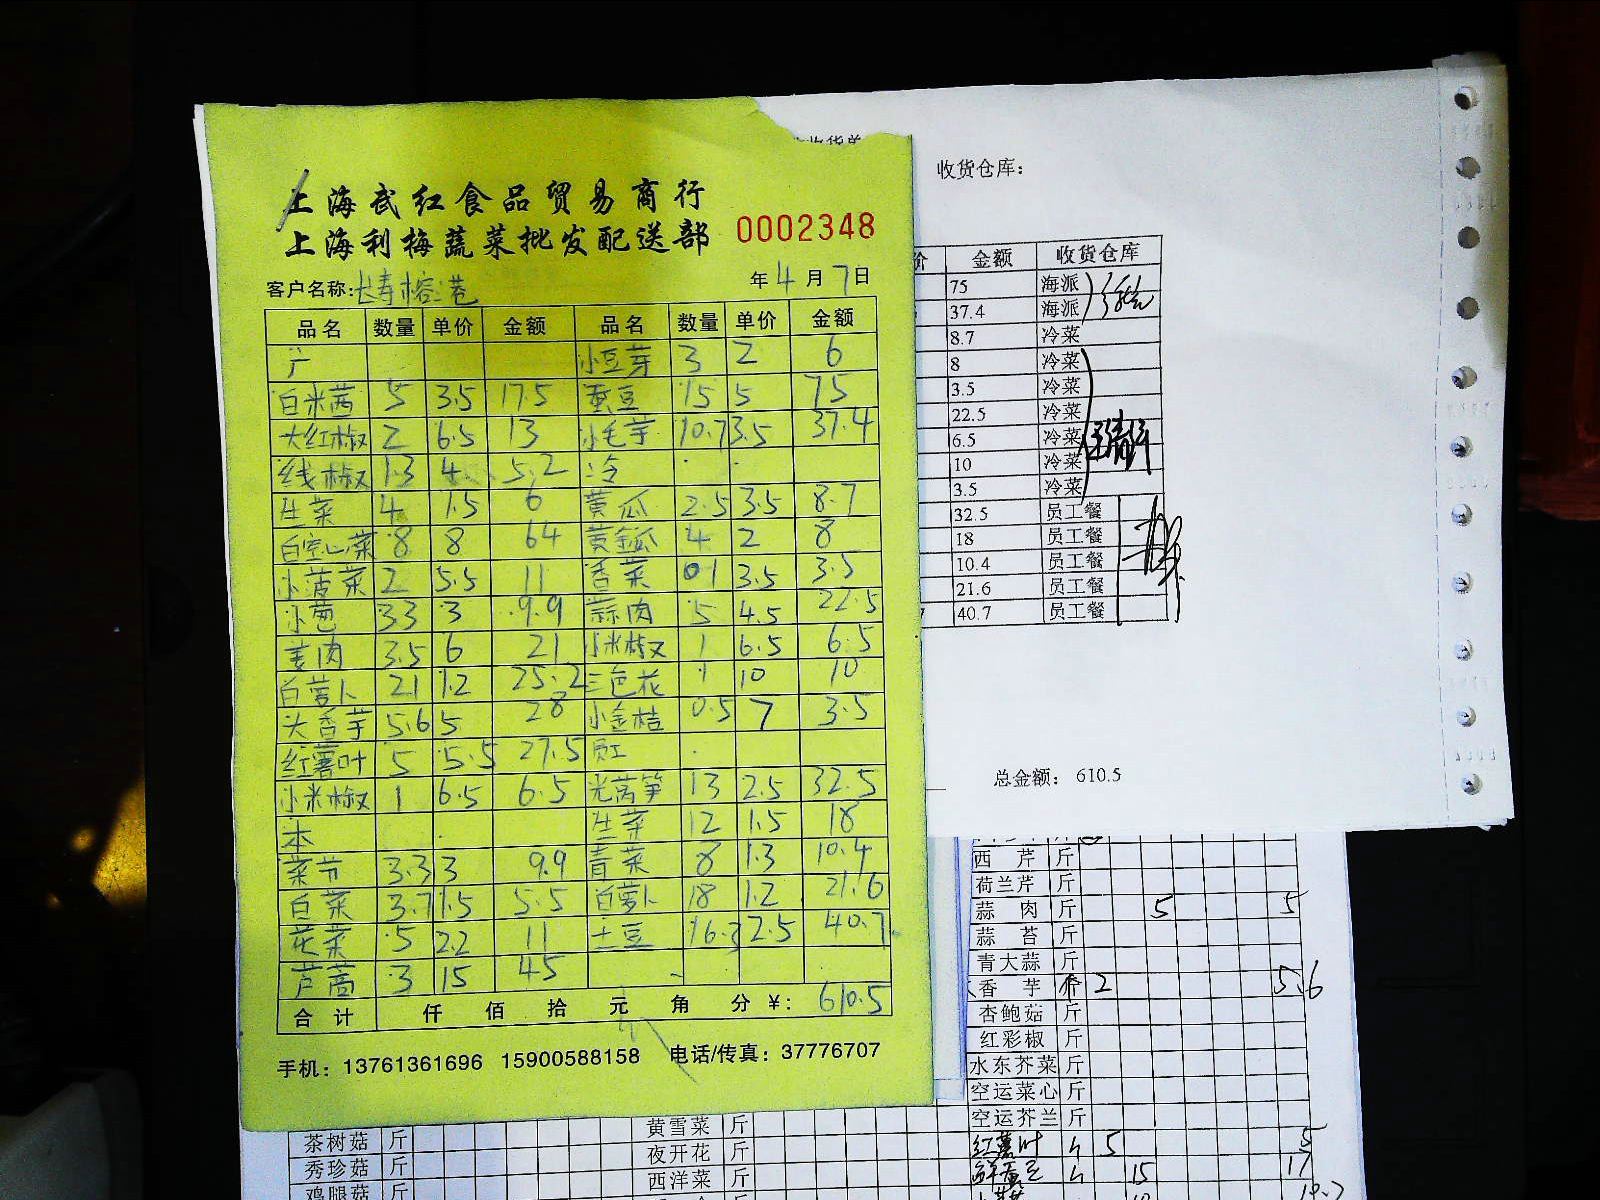 上海武红食品贸易商行
上海利梅蔬菜批发配送部 0002348
客户名称: 年4月7日
品名 数量 单价 金额 品名 数量 单价 金额
小豆芽 3 2 6
白米茜 5 3.5 17.5 蚕豆 15 5 75
大红椒 2 6.5 13 小毛芋 10.7 3.5 37.4
线椒 1.3 4 5.2 冷
生菜 4 1.5 6 黄瓜 2.5 3.5 8.7
白空心菜 8 8 64 黄金瓜 4 2 8
小菠菜 2 5.5 11 香菜 01 3.5 3.5
小葱 3.3 3 9.9 蒜肉 5 4.5 22.5
姜肉 3.5 6 21 小米椒 1 6.5 6.5
白萝卜 21 1.2 25.2 三色花 1 10 10
大香芋 5.6 5 28 小金桔 0.5 7 3.5
红薯叶 5 5.5 27.5 员工
小米椒 1 6.5 6.5 光莴笋 13 2.5 32.5
本 生菜 12 1.5 18
菜节 3.3 3 9.9 青菜 8 1.3 10.4
白菜 3.7 1.5 5.5 白萝卜 18 1.2 21.6
花菜 5 2.2 11 土豆 16.3 2.5 40.7
芦蒿 3 15 45
合计 仟 佰 拾 元 角 分 ¥: 610.5
手机: 13761361696 15900588158 电话/传真: 37776707
收货单
收货仓库:
价 金额 收货仓库
75 海派
37.4 海派
8.7 冷菜
8 冷菜
3.5 冷菜
22.5 冷菜
6.5 冷菜
10 冷菜
3.5 冷菜
32.5 员工餐
18 员工餐
10.4 员工餐
21.6 员工餐
7 40.7 员工餐
总金额: 610.5
西芹 斤
荷兰芹 斤
蒜肉 斤 5 5
蒜苔 斤
青大蒜 斤
香芋 斤 2 5.6
杏鲍菇 斤
红彩椒 斤
水东芥菜 斤
空运菜心 斤
空运芥兰 斤
红薯叶 5 5
鲜蚕豆 15 17
19.7
茶树菇 斤
秀珍菇 斤
鸡腿菇 斤
黄雪菜 斤
夜开花 斤
西洋菜 斤